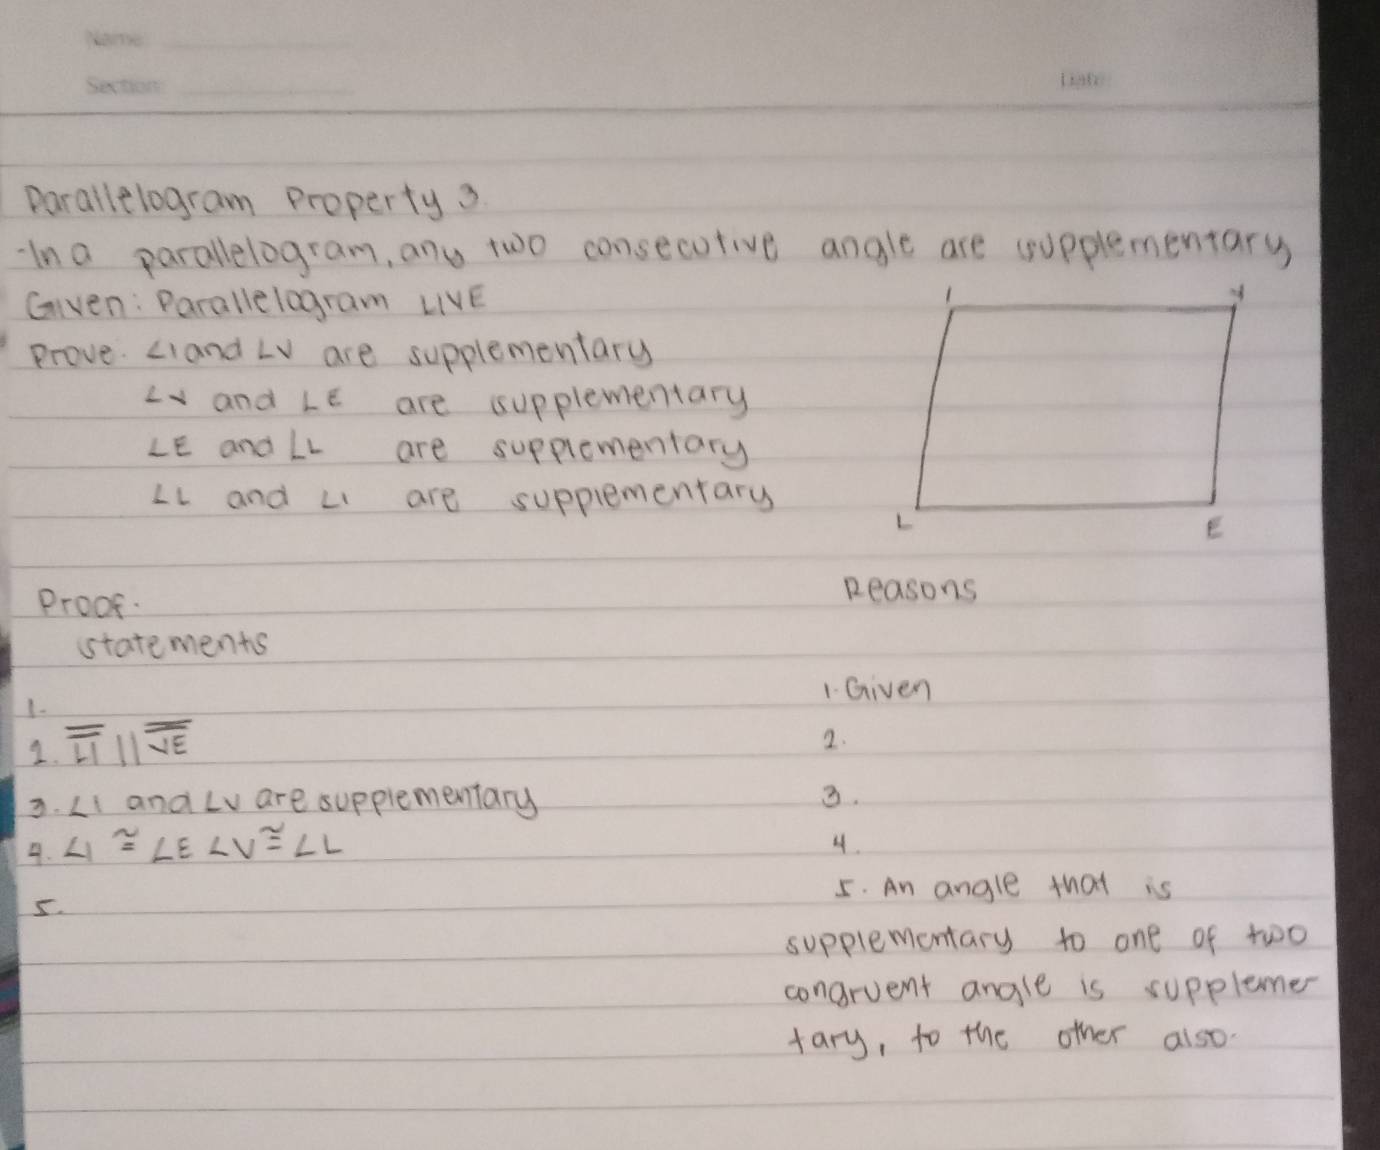 Name:
Section:
Date:
Parallelogram Property 3.
-In a parallelogram, any two consecutive angle are supplementary
Given: Parallelogram LIVE
Prove. ∠I and ∠V are supplementary
∠V and ∠E are supplementary
∠E and ∠L are supplementary
∠L and ∠I are supplementary
I V
L E
Proof. Reasons
statements
1. 1. Given
2. LI || VE 2.
3. ∠I and ∠V are supplementary 3.
4. ∠I ≅ ∠E ∠V ≅ ∠L 4.
5. 5. An angle that is
supplementary to one of two
congruent angle is supplemen
tary, to the other also.